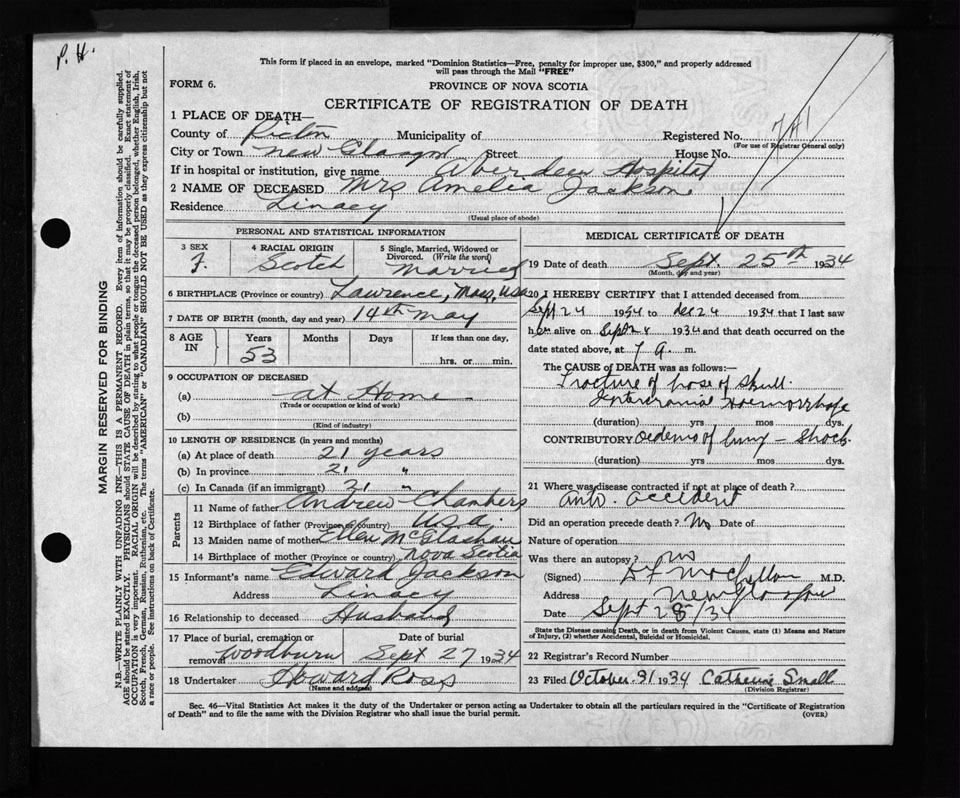 P. H.
This form if placed in an envelope, marked "Dominion Statistics—Free, penalty for improper use, $300," and properly addressed
will pass through the Mail "FREE"
FORM 6.
PROVINCE OF NOVA SCOTIA
CERTIFICATE OF REGISTRATION OF DEATH
1 PLACE OF DEATH—
County of Pictou Municipality of Registered No. 741
(For use of Registrar General only)
City or Town New Glasgow Street House No.
If in hospital or institution, give name Aberdeen Hospital
2 NAME OF DECEASED Mrs Amelia Jackson
Residence Linacy
(Usual place of abode)
PERSONAL AND STATISTICAL INFORMATION
3 SEX 4 RACIAL ORIGIN 5 Single, Married, Widowed or
Divorced. (Write the word)
F. Scotch Married
6 BIRTHPLACE (Province or country) Lawrence, Mass, USA
7 DATE OF BIRTH (month, day and year) 14th May
8 AGE IN Years Months Days If less than one day,
53 hrs. or min.
9 OCCUPATION OF DECEASED
(a) at Home
(Trade or occupation or kind of work)
(b)
(Kind of industry)
10 LENGTH OF RESIDENCE (in years and months)
(a) At place of death 21 years
(b) In province 21 "
(c) In Canada (if an immigrant) 21 "
Parents
11 Name of father Andrew Chambers
12 Birthplace of father (Province or country) U.S.A.
13 Maiden name of mother Ellen McGlashan
14 Birthplace of mother (Province or country) Nova Scotia
15 Informant's name Edward Jackson
Address Linacy
16 Relationship to deceased Husband
17 Place of burial, cremation or removal Woodburn Date of burial Sept 27 1934
18 Undertaker Howard Ross
(Name and address)
MEDICAL CERTIFICATE OF DEATH
19 Date of death Sept. 25th 1934
(Month, day and year)
20 I HEREBY CERTIFY that I attended deceased from
Sept 24 1934 to 24 1934 that I last saw
her alive on Sept 24 1934 and that death occurred on
date stated above, at 7 a. m.
The CAUSE of DEATH was as follows:—
Fracture of base of Skull.
Intercranial Haemorrhage
(duration) yrs mos dys.
CONTRIBUTORY Oedema of lung — Shock
(duration) yrs mos dys.
21 Where was disease contracted if not at place of death?
Auto. accident
Did an operation precede death? No Date of
Nature of operation
Was there an autopsy? no
(Signed) M.D.
Address New Glasgow
Date Sept 28/34
State the Disease causing Death, or in death from Violent Causes, state (1) Means and Nature
of Injury, (2) whether Accidental, Suicidal or Homicidal.
22 Registrar's Record Number
23 Filed October 31 1934 Catherine Small
(Division Registrar)
Sec. 46—Vital Statistics Act makes it the duty of the Undertaker or person acting as Undertaker to obtain all the particulars required in the "Certificate of Registration
of Death" and to file the same with the Division Registrar who shall issue the burial permit. (OVER)
MARGIN RESERVED FOR BINDING
N.B.—WRITE PLAINLY WITH UNFADING INK—THIS IS A PERMANENT RECORD. Every item of information should be carefully supplied.
AGE should be stated EXACTLY. PHYSICIANS should STATE CAUSE OF DEATH in plain terms, so that it may be properly classified. Exact statement of
OCCUPATION is very important. RACIAL ORIGIN will be described by stating to what people or tongue the deceased person belonged, whether English, Irish,
Scotch, French, German, Russian, Ruthenian, etc. The terms "AMERICAN" or "CANADIAN" SHOULD NOT BE USED as they express citizenship but not
a race or people. See instructions on back of Certificate.